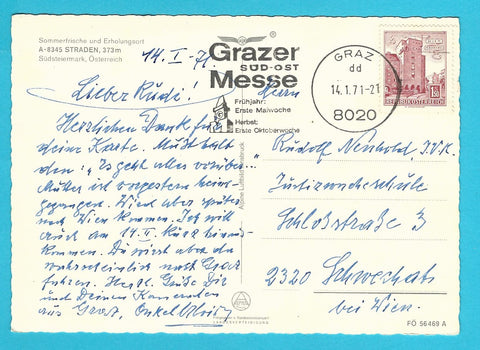 Sommerfrische und Erholungsort
A-8345 STRADEN, 373m
Südsteiermark, Österreich
14. I - 71
Lieber Rudi!
Herrlichen Dank für
deine Karte. Mußt halt
den: „Es geht alles vorüber“.
Mutter ist vorgestern heim-
gegangen. Wird aber später
nach Wien kommen. Ich will
auch am 14. II kurz hinaus-
kommen. Du wirst aber da
wahrscheinlich nach Graz
fahren. Herzl. Grüße Dir
und Deinen Kameraden
aus Graz, Onkel
Grazer
SÜD-OST
Messe
Frühjahr:
Erste Maiwoche
Herbst:
Erste Oktoberwoche
GRAZ
dd
14.1.71-21
8020
REPUBLIK ÖSTERREICH
Herrn
Rudolf
Schloßstraße 3
2320 Schwechat
bei Wien.
FÖ 56469 A